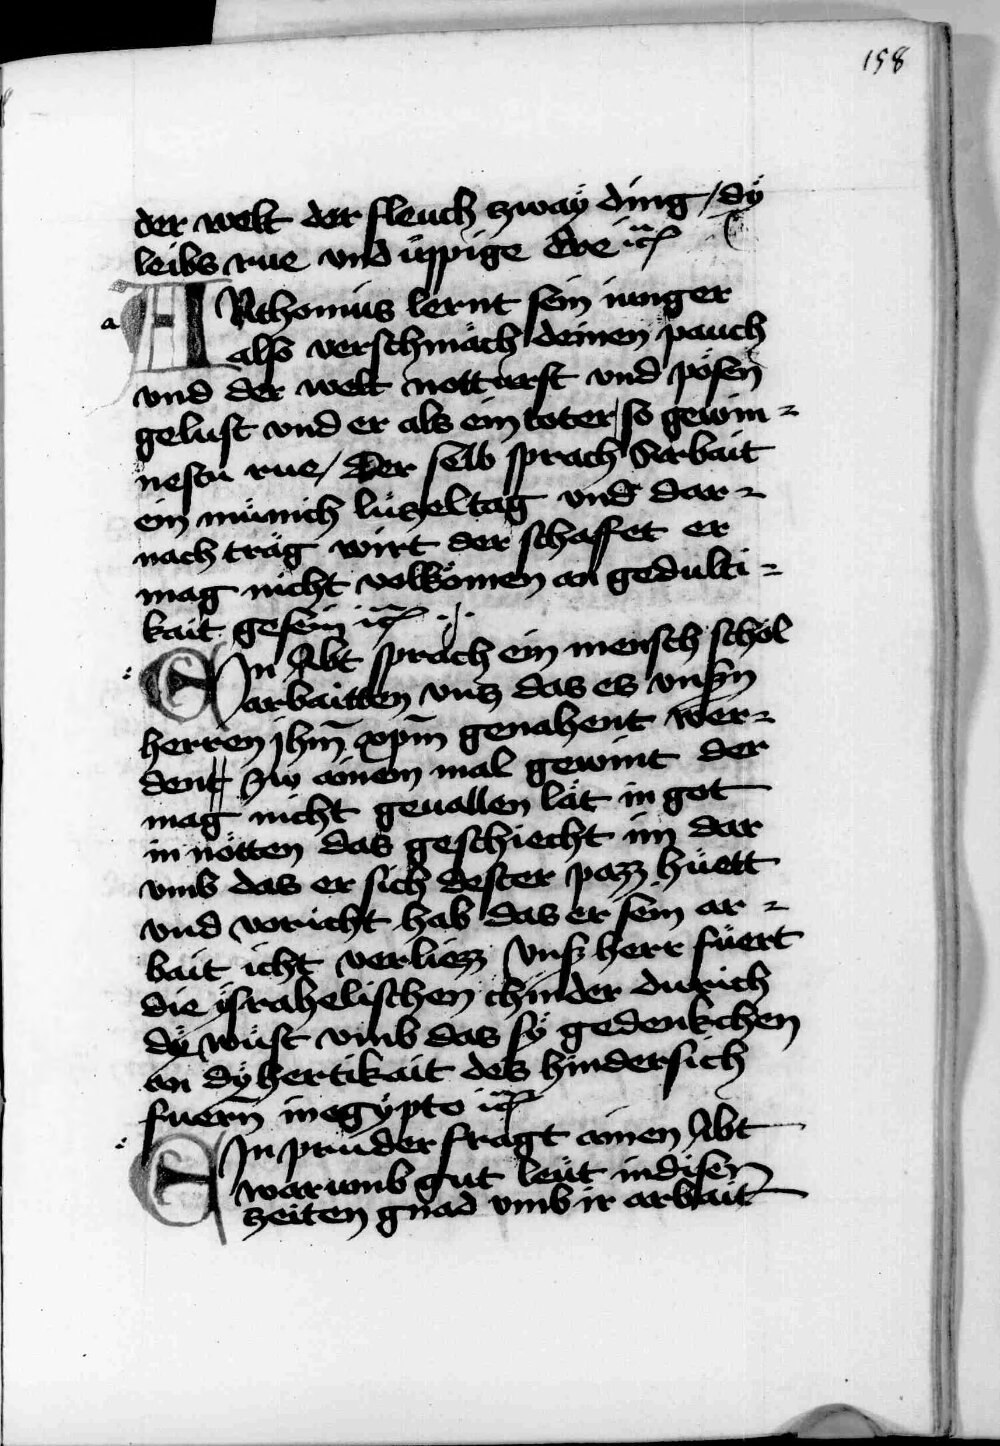 158
der welt der fleuch zwaÿ ding / dÿ
leibs rue vnd üppige Ere ⁊c̃
a
ANthonius lernt sein iunger
also verschmäch deinen pauch
vnd der welt notturft vnd pösen
gelust vnd er als ein toter / so gewin⸗
nestu rue / Der selb sprach Arbait
ein münich lüzeltag vnd dar⸗
nach träg wirt der schaffet er
mag nicht volkömen an gedulti⸗
kait gesein ⁊c̃
EIn Abt sprach ein mensch schol
arbaitten vnz das es vnßn
herren jhm̃ xpm̃ genahent wer⸗
dent Zw ainem mal gewint der
mag nicht geuallen lät in got
in nötten das geschiecht im dar
vmb das er sich dester pazz hüett
vnd voricht hab das er sein ar⸗
bait icht verliezz Vnß herr füert
die ÿsrahelischen chinder durich
dÿ wüst vmb das sÿ gedenkchen
an dÿ hertikait des hindersich
fuern̄ in egÿpto ⁊c̃
EIn prüder fragt ainen Abt
warumb gut leüt in disen
zeiten gnad vmb ir arbait